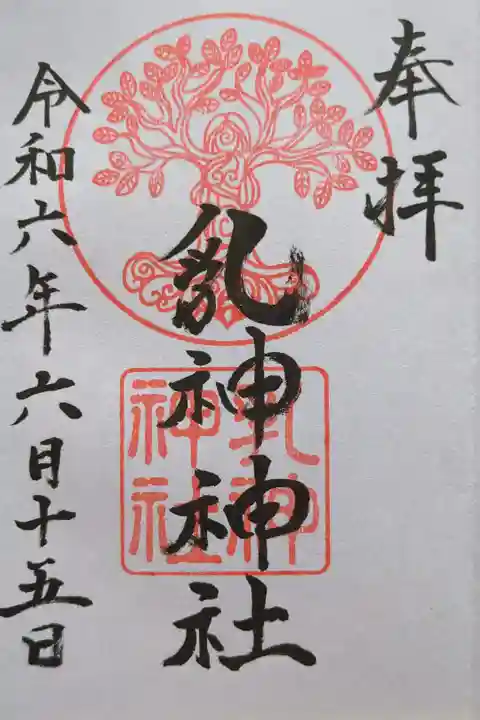 奉拝
乳神神社
令和六年六月十五日
乳神
神社